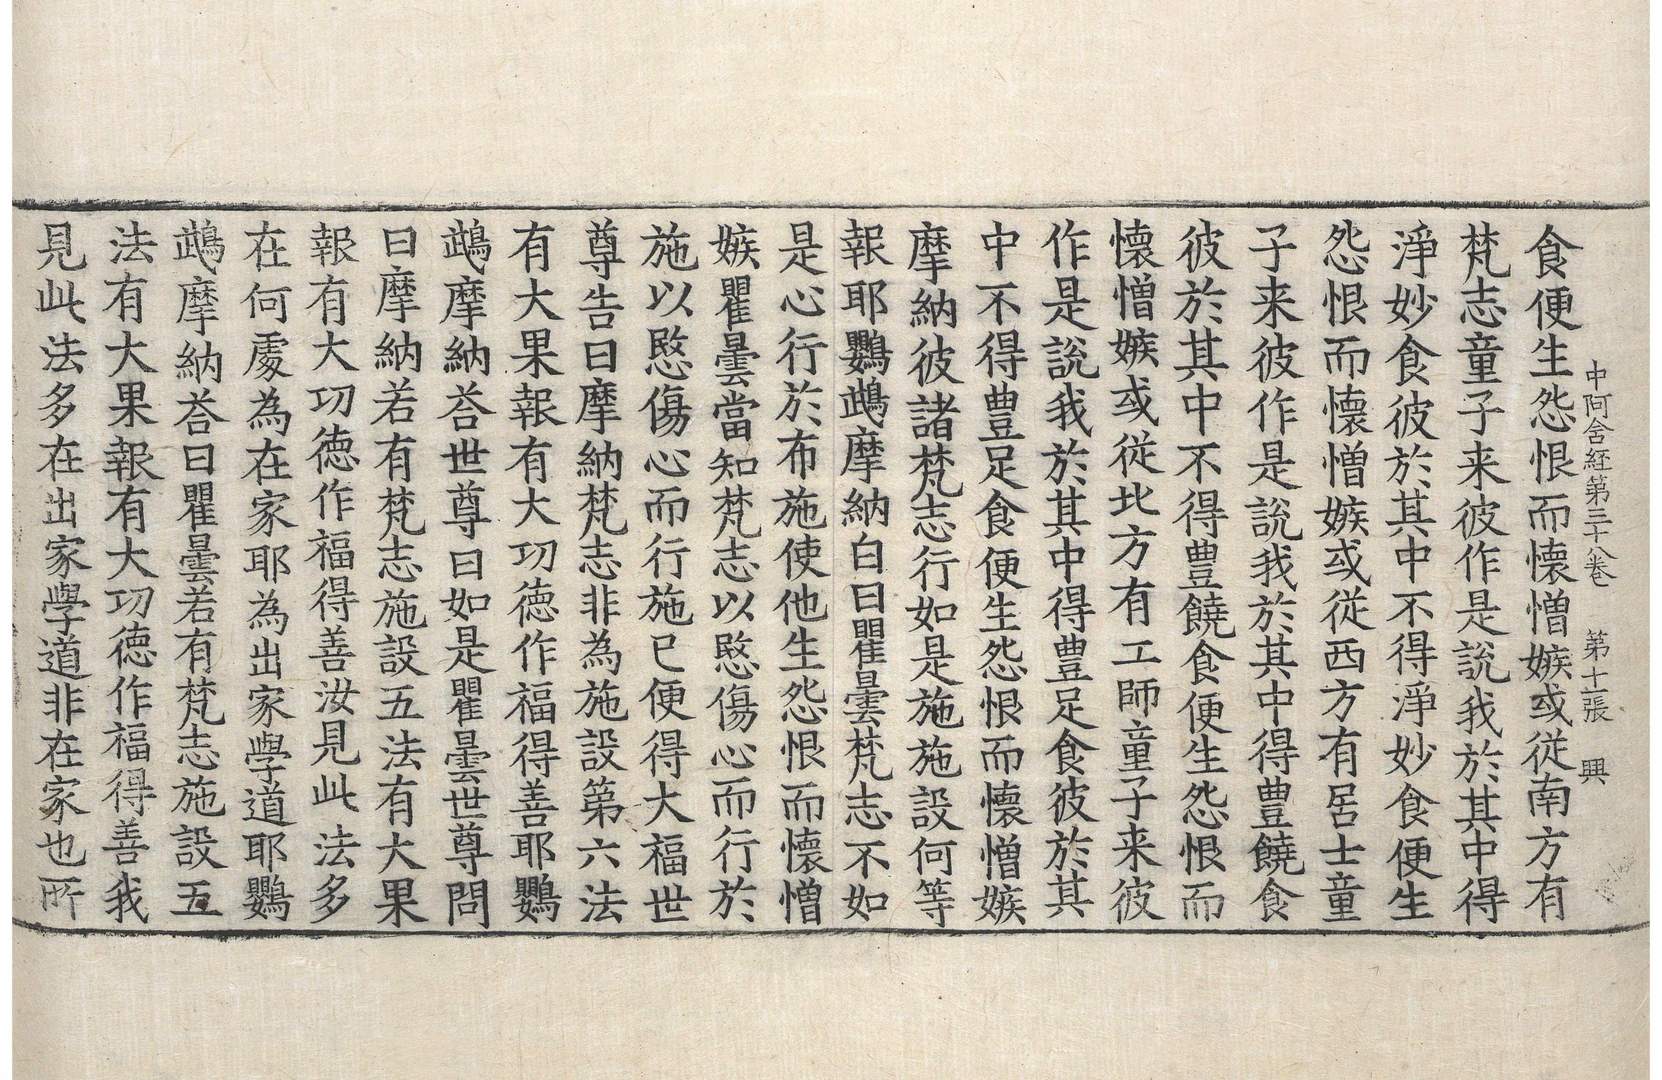 中阿含經第三十八卷 第十二張 興
食便生怨恨而懷憎嫉或從南方有
梵志童子来彼作是説我於其中得
淨妙食彼於其中不得淨妙食便生
怨恨而懷憎嫉或從西方有居士童
子来彼作是説我於其中得豊饒食
彼於其中不得豊饒食便生怨恨而
懷憎嫉或從北方有工師童子来彼
作是説我於其中得豊足食彼於其
中不得豊足食便生怨恨而懷憎嫉
摩納彼諸梵志行如是施施設何等
報耶鸚鵡摩納白曰瞿曇梵志不如
是心行於布施使他生怨恨而懷憎
嫉瞿曇當知梵志以愍傷心而行於
施以愍傷心而行施已便得大福世
尊告曰摩納梵志非為施設第六法
有大果報有大功德作福得善耶鸚
鵡摩納荅世尊曰如是瞿曇世尊問
曰摩納若有梵志施設五法有大果
報有大功德作福得善汝見此法多
在何處為在家耶為出家學道耶鸚
鵡摩納荅曰瞿曇若有梵志施設五
法有大果報有大功德作福得善我
見此法多在出家學道非在家也所